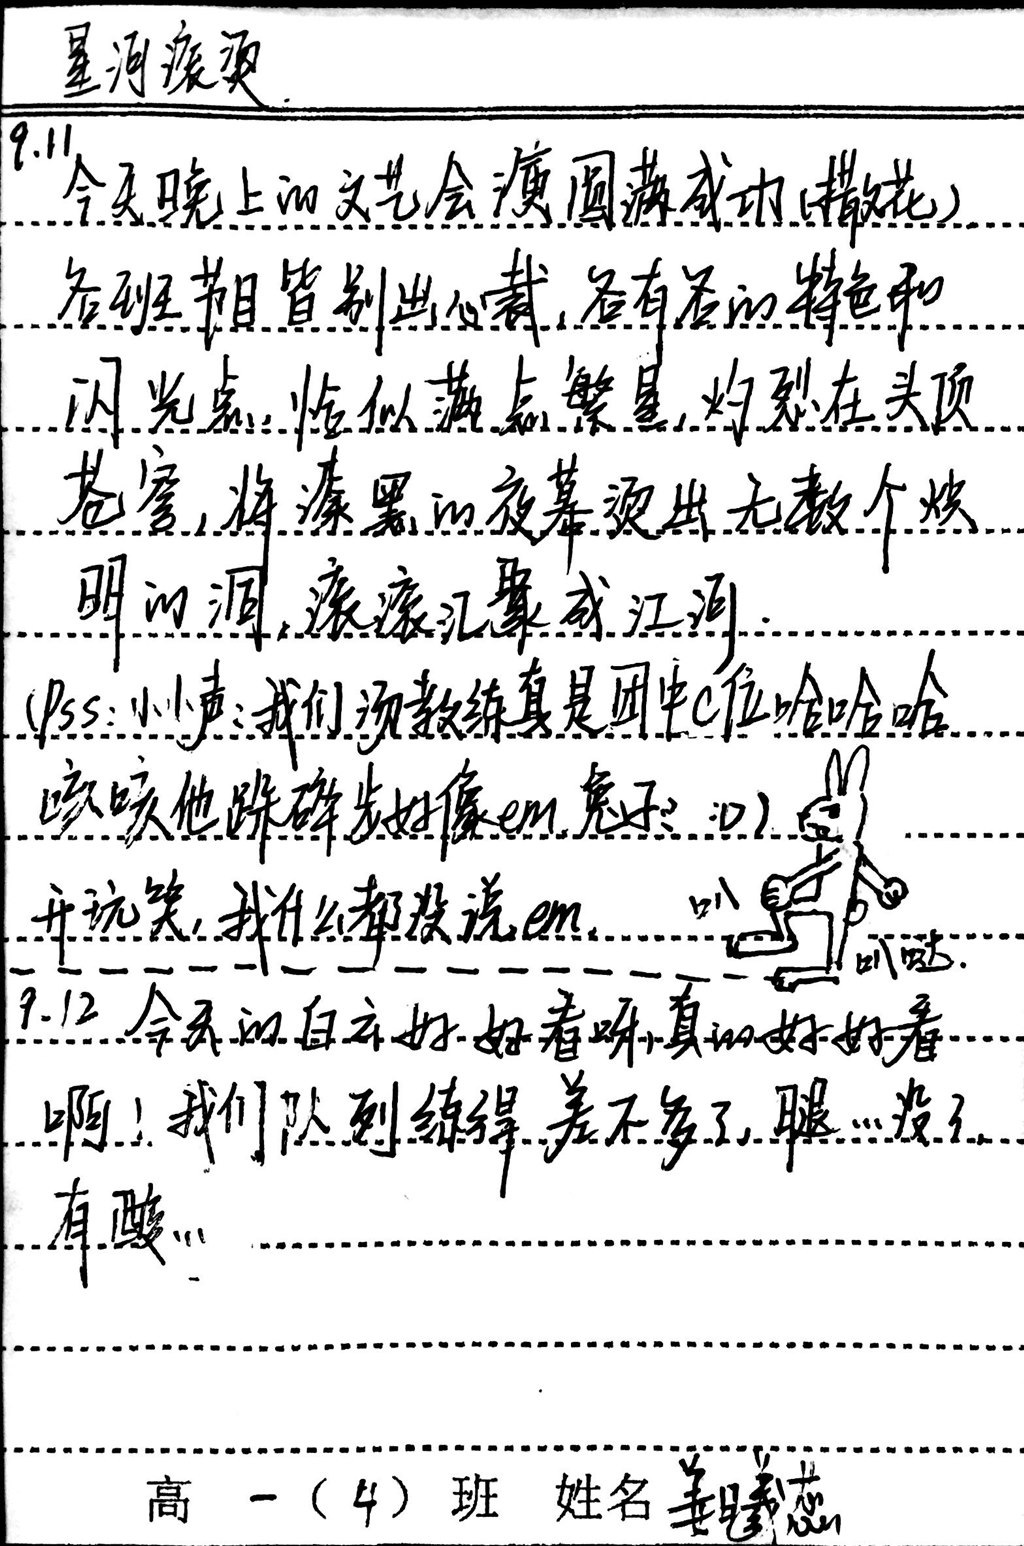 星河滚烫
9.11
今天晚上的文艺会演圆满成功(撒花)
各班节目皆别出心裁,各有各的特色和
闪光点,恰似满点繁星,灼烈在头顶
苍穹,将漆黑的夜幕烫出无数个炔
明的洞,滚滚汇聚成江河.
(Pss:小小声:我们汤教练真是团中C位哈哈哈
咳咳他跺碎步好像em.兔子? :D)
开玩笑,我什么都没说em.
叭
叭哒.
9.12 今天的白云好好看呀,真的好好看
啊!我们队列练得差不多了,腿…没了,
有酸…
高一(4)班 姓名 姜曦蕊